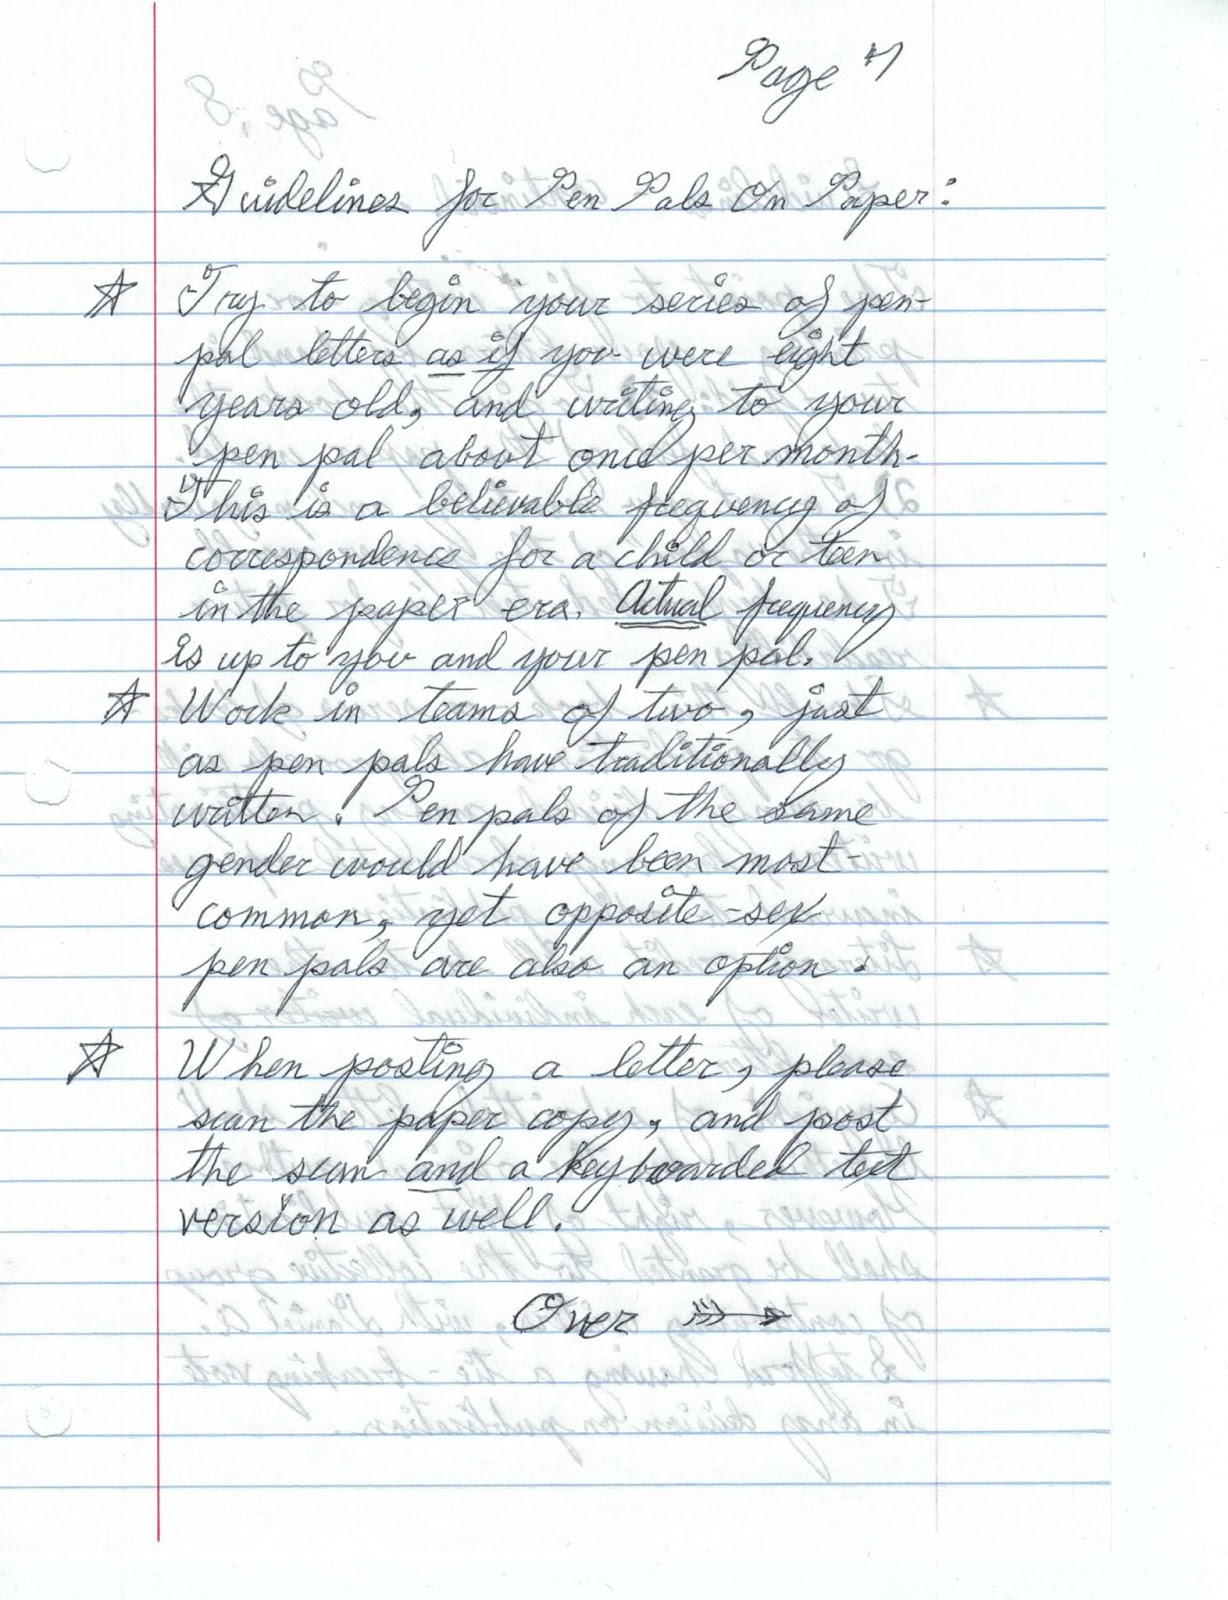 Page 7
Guidelines for Pen Pals On Paper:
☆ Try to begin your series of pen-
pal letters as if you were eight
years old, and writing to your
pen pal about once per month.
This is a believable frequency of
correspondence for a child or teen
in the paper era. Actual frequency
is up to you and your pen pal.
☆ Work in teams of two, just
as pen pals have traditionally
written. Pen pals of the same
gender would have been most
common, yet opposite-sex
pen pals are also an option.
☆ When posting a letter, please
scan the paper copy, and post
the scan and a keyboarded text
version as well.
Over →